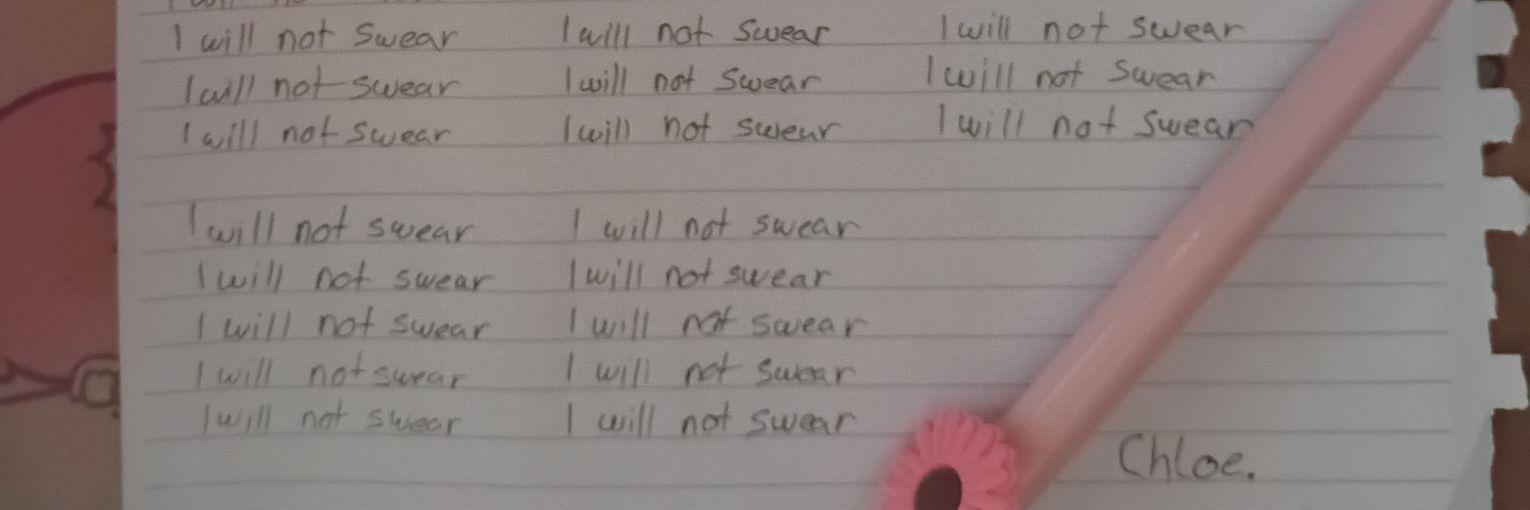 I will not swear I will not swear I will not swear
I will not swear I will not swear I will not swear
I will not swear I will not swear I will not swear
I will not swear I will not swear
I will not swear I will not swear
I will not swear I will not swear
I will not swear I will not swear
I will not swear I will not swear
Chloe.